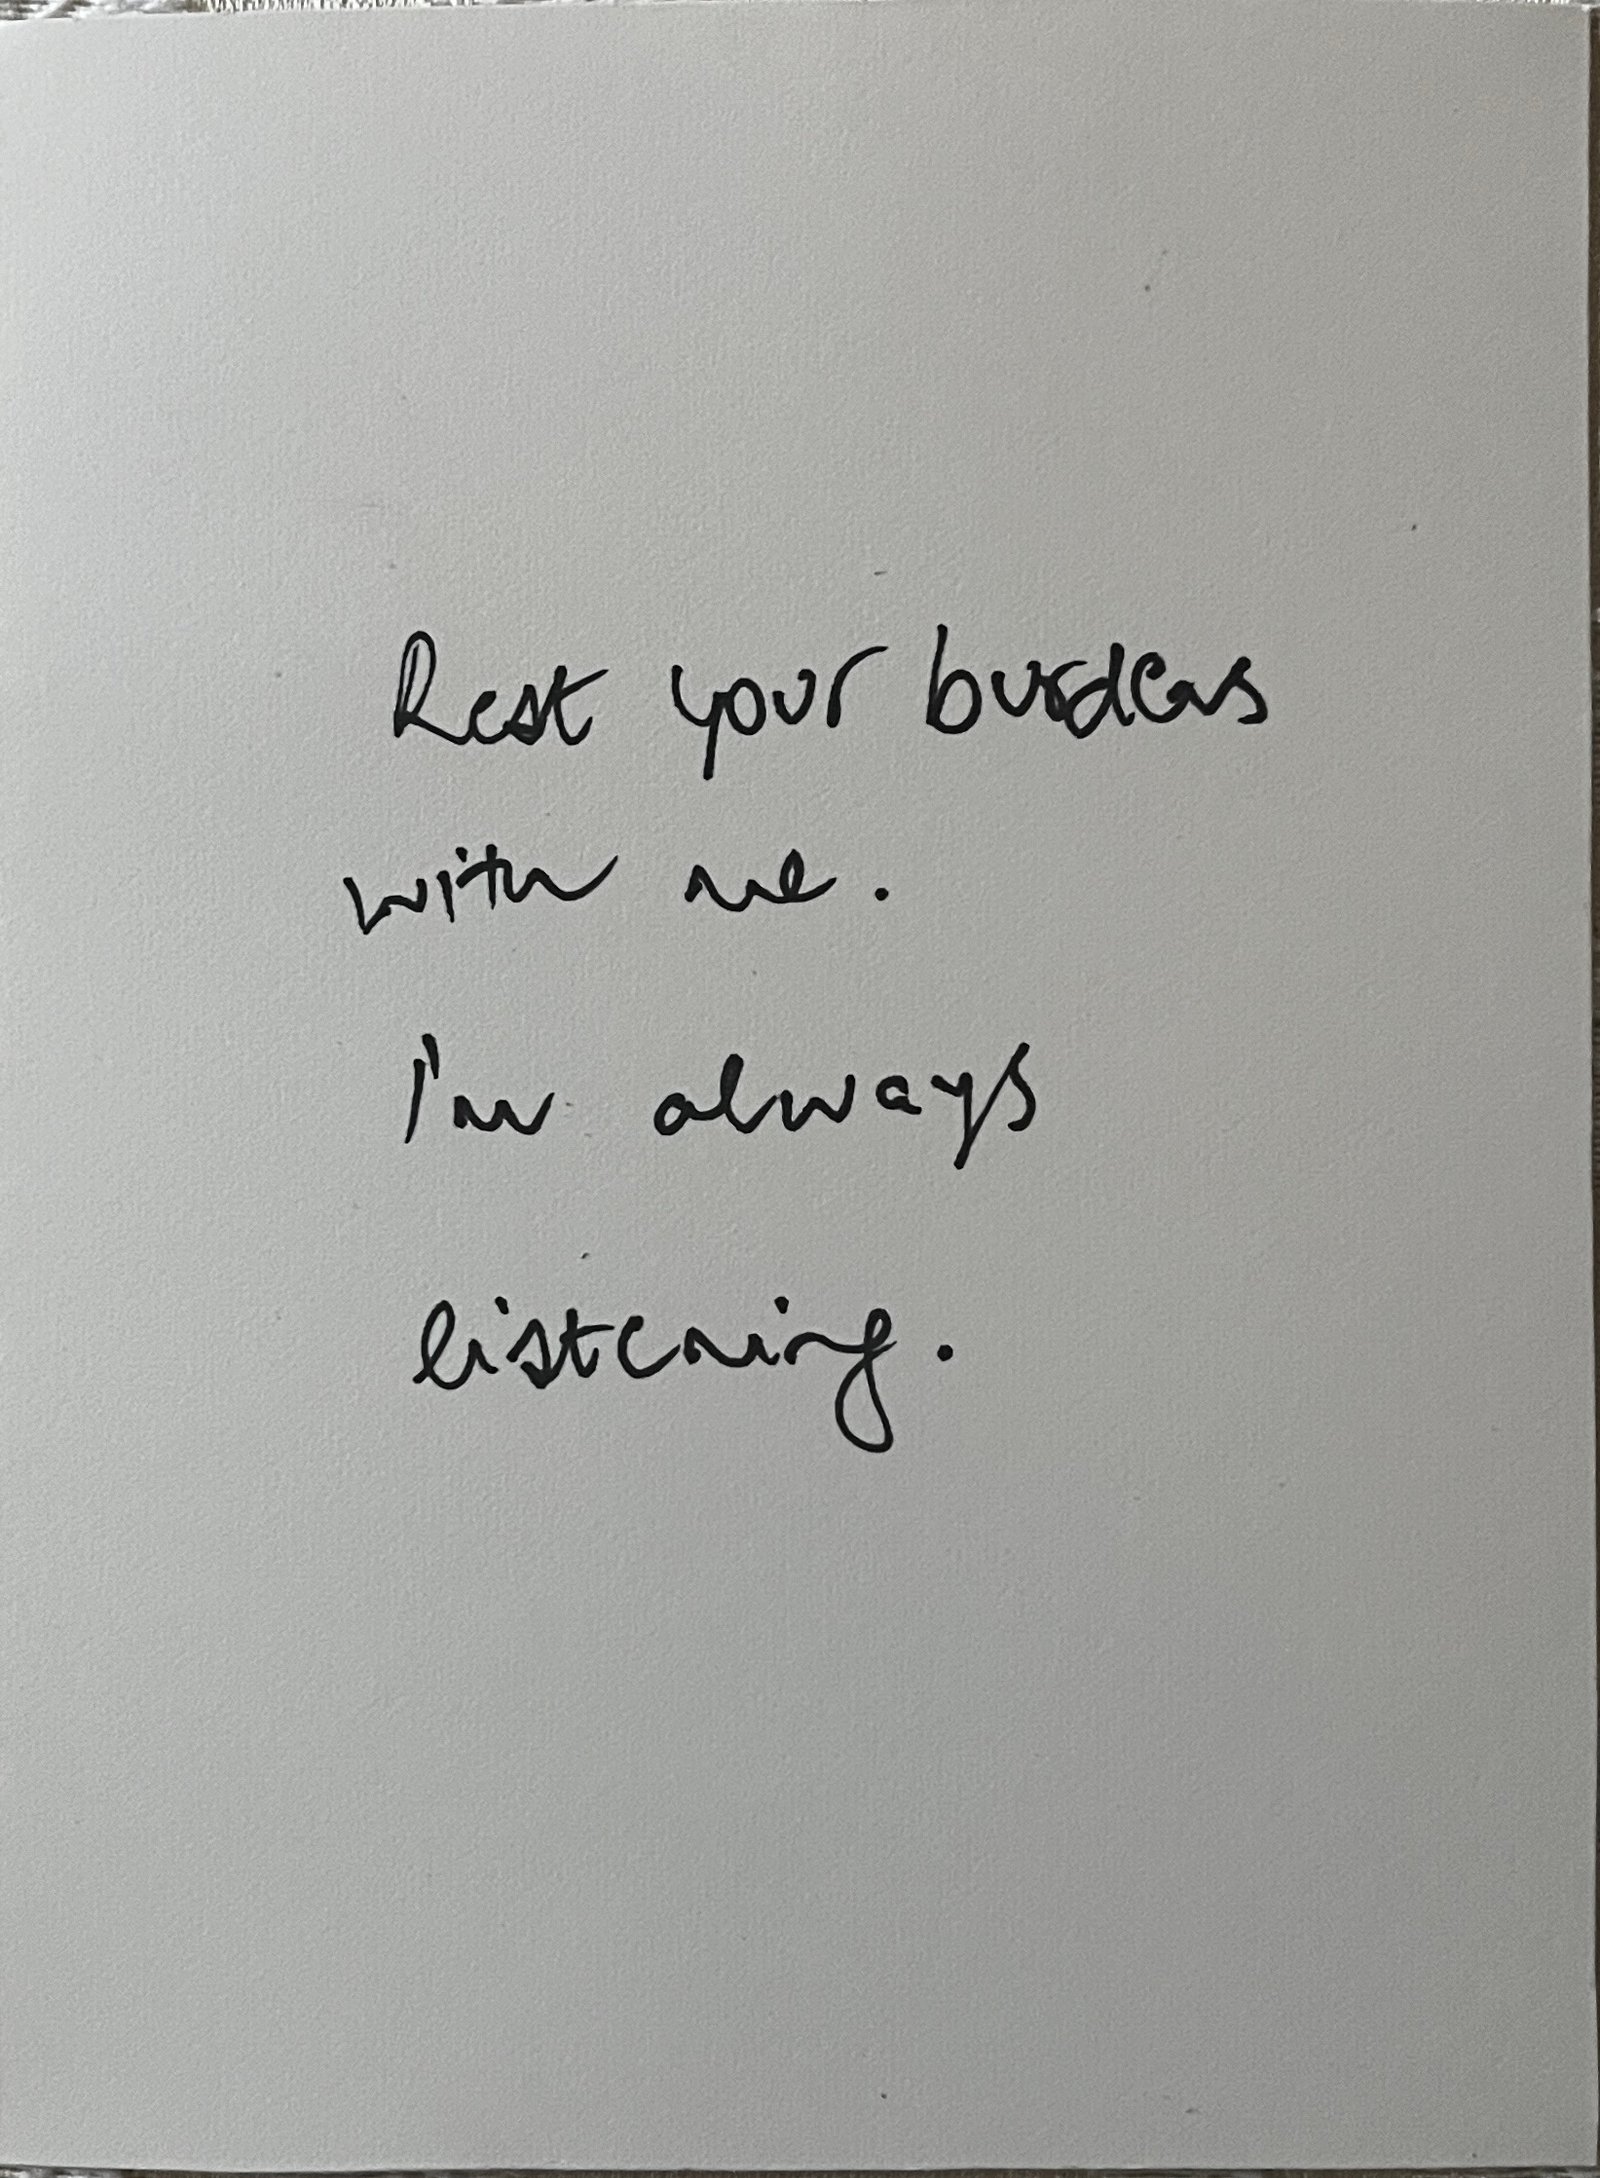 Rest your burdens
with me.
I'm always
listening.